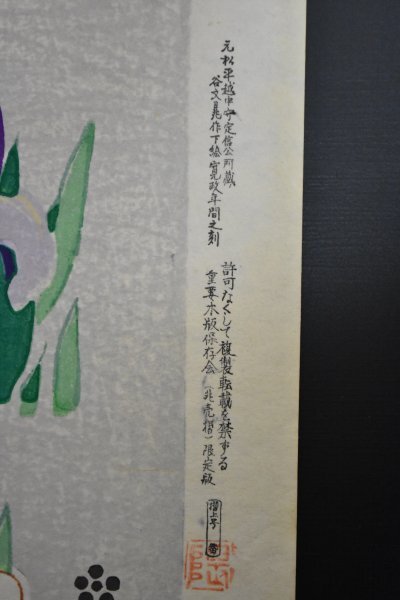 元松平越中守定信公所蔵
谷文晁作下繪寛政年間之刻
許可なくして複製転載を禁ずる
重要木版保存会（非売摺）限定版
摺上号